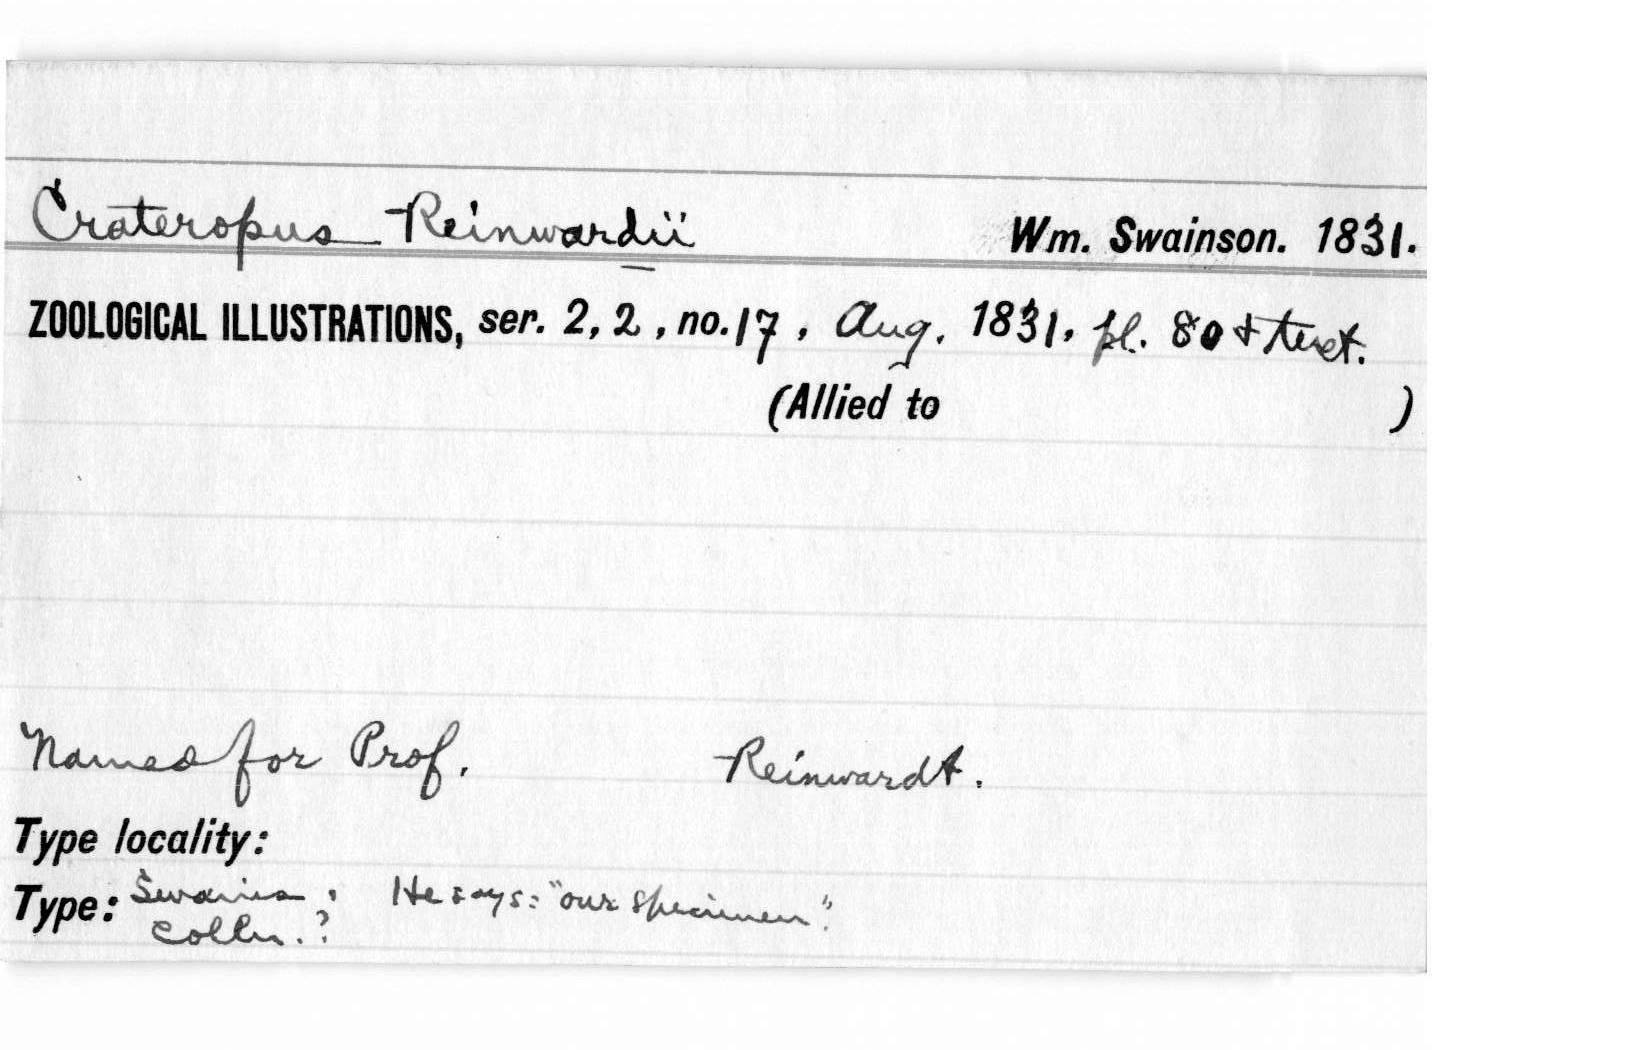 Crateropus Reinwardii Wm. Swainson. 1831.
ZOOLOGICAL ILLUSTRATIONS, ser. 2, 2, no. 17, Aug. 1831, pl. 80 & text.
(Allied to )
Named for Prof. Reinwardt.
Type locality:
Type: Swains. He says: "our specimen".
Colln.?